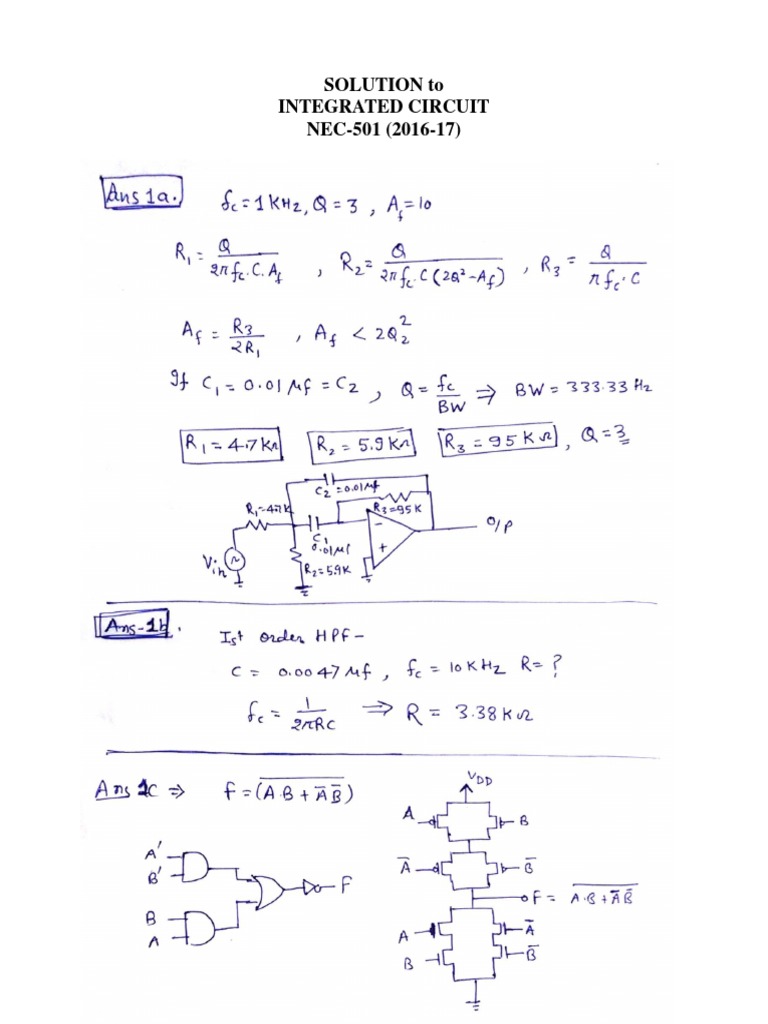 SOLUTION to
INTEGRATED CIRCUIT
NEC-501 (2016-17)
Ans 1a. fc = 1 KHz, Q = 3 , Af = 10
R1 = Q / 2π fc. C. Af , R2 = Q / 2π fc. C (2Q² - Af) , R3 = Q / π fc. C
Af = R3 / 2R1 , Af < 2Q²
If C1 = 0.01 μf = C2 , Q = fc / BW ⇒ BW = 333.33 Hz
R1 = 4.7 KΩ R2 = 5.9 KΩ R3 = 95 KΩ , Q = 3
C2 = 0.01μf
R1 = 4.7 K R3 = 95 K
- o/p
C1
0.01μf +
Vin R2 = 5.9K
Ans-1b. Ist order HPF -
C = 0.0047 μf , fc = 10 KHz R = ?
fc = 1 / 2πRC ⇒ R = 3.38 KΩ
Ans 1c ⇒ F = (A̅.̅B̅ ̅+̅ ̅A̅̅ ̅B̅̅)
VDD
A B
A̅ B̅
A'
B' F
F = A̅.̅B̅ ̅+̅ ̅A̅̅ ̅B̅̅
B
A
A A̅
B B̅